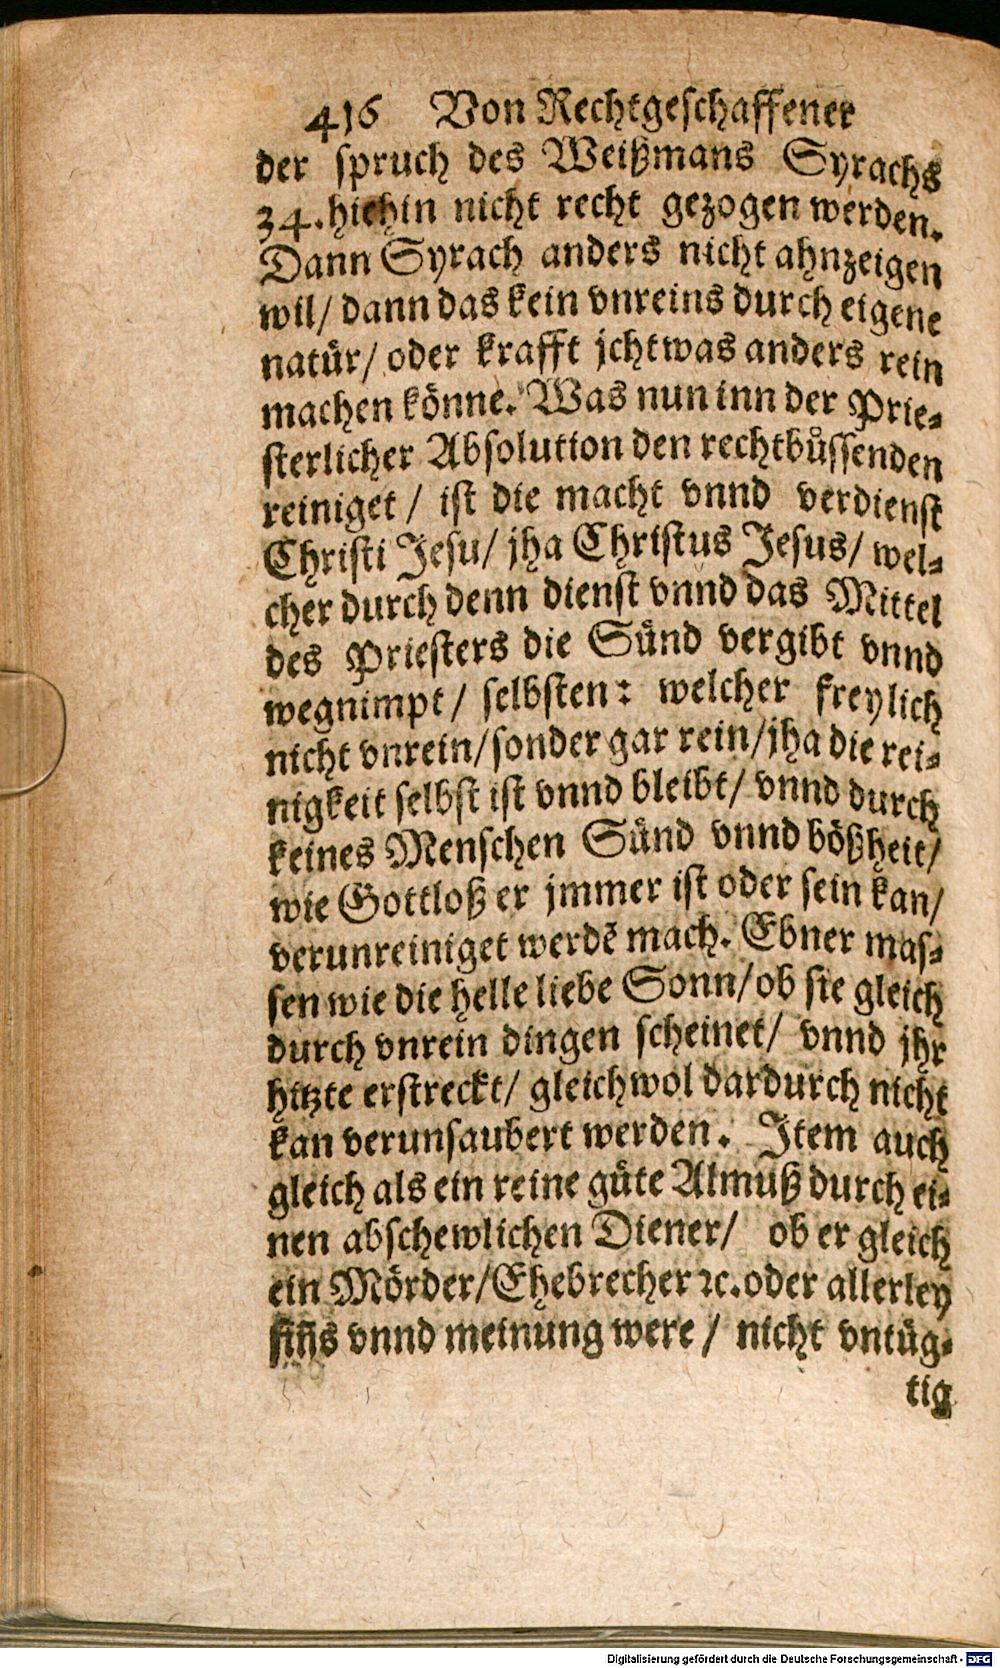 416 Von Rechtgeschaffener
der spruch des Weißmans Syrachs
34. hiehin nicht recht gezogen werden.
Dann Syrach anders nicht ahnzeigen
wil/ dann das kein vnreins durch eigene
natür/ oder krafft jchtwas anders rein
machen könne. Was nun inn der Prie-
sterlicher Absolution den rechtbůssenden
reiniget / ist die macht vnnd verdienst
Christi Jesu/ jha Christus Jesus/ wel-
cher durch denn dienst vnnd das Mittel
des Priesters die Sünd vergibt vnnd
wegnimpt/ selbsten: welcher freylich
nicht vnrein/ sonder gar rein/ jha die rei-
nigkeit selbst ist vnnd bleibt/ vnnd durch
keines Menschen Sünd vnnd bößheit/
wie Gottloß er jmmer ist oder sein kan/
verunreiniget werdē mach. Ebner mas-
sen wie die helle liebe Sonn/ ob sie gleich
durch vnrein dingen scheinet/ vnnd jhr
hitzte erstreckt/ gleichwol dardurch nicht
kan verunsaubert werden. Item auch
gleich als ein reine güte Almuß durch ei-
nen abschewlichen Diener/ ob er gleich
ein Mörder/ Ehebrecher ꝛc. oder allerley
siñs vnnd meinung were / nicht vntüg-
tig
Digitalisierung gefördert durch die Deutsche Forschungsgemeinschaft - DFG